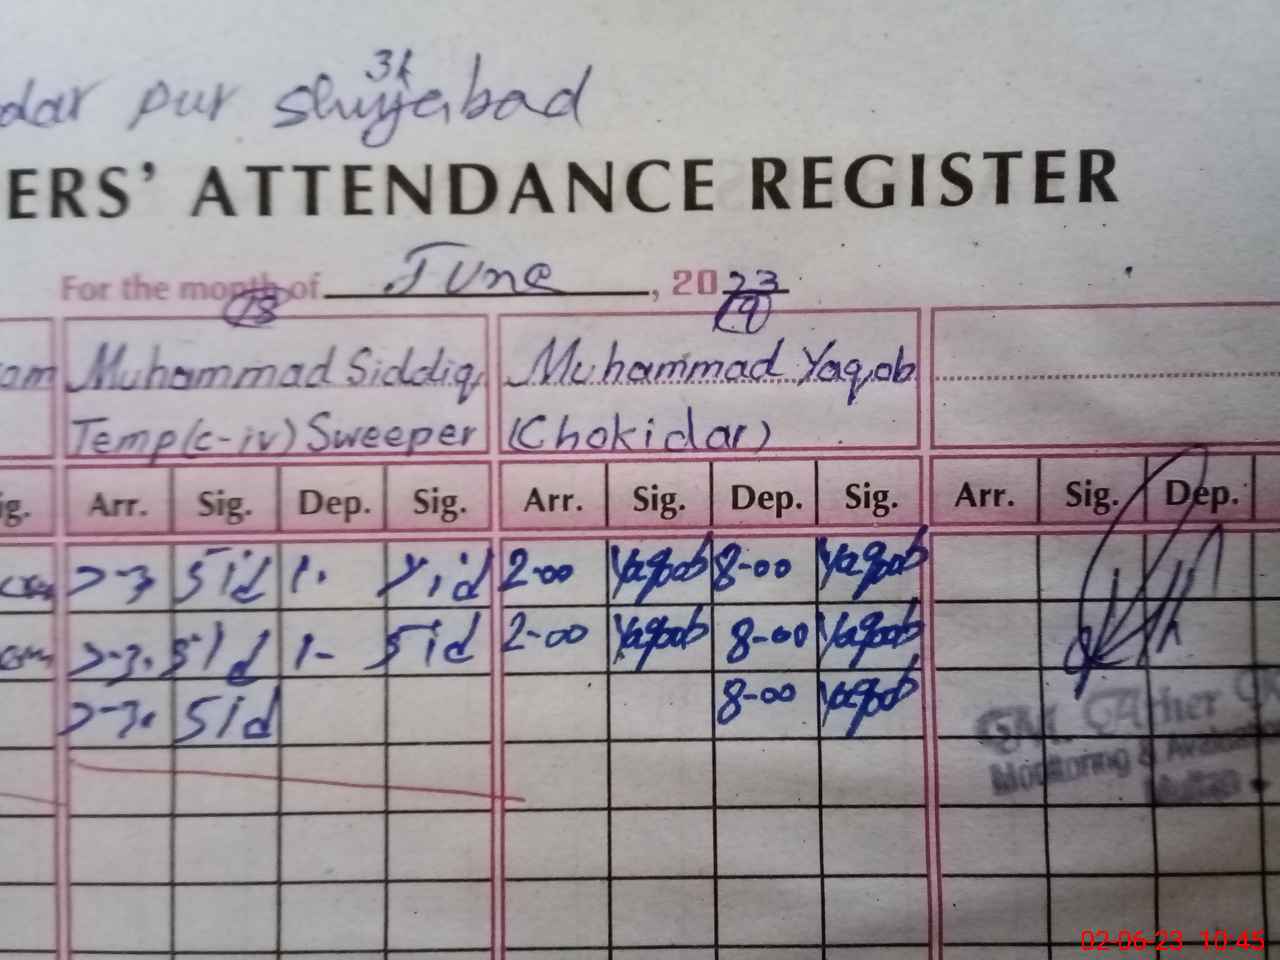 dar pur Shujabad
ERS' ATTENDANCE REGISTER
For the month of June, 2023
18 19
Muhammad Siddiq Muhammad Yaqob
Temp (c-iv) Sweeper (Chokidar)
ig. Arr. Sig. Dep. Sig. Arr. Sig. Dep. Sig. Arr. Sig. Dep.
Sid 1. Sid 2-00 Yaqoob 8-00 Yaqoob
Sid 1- Sid 2-00 Yaqoob 8-00 Yaqoob
Sid 8-00 Yaqoob
Monitoring &
Multan
02-06-23 10:45